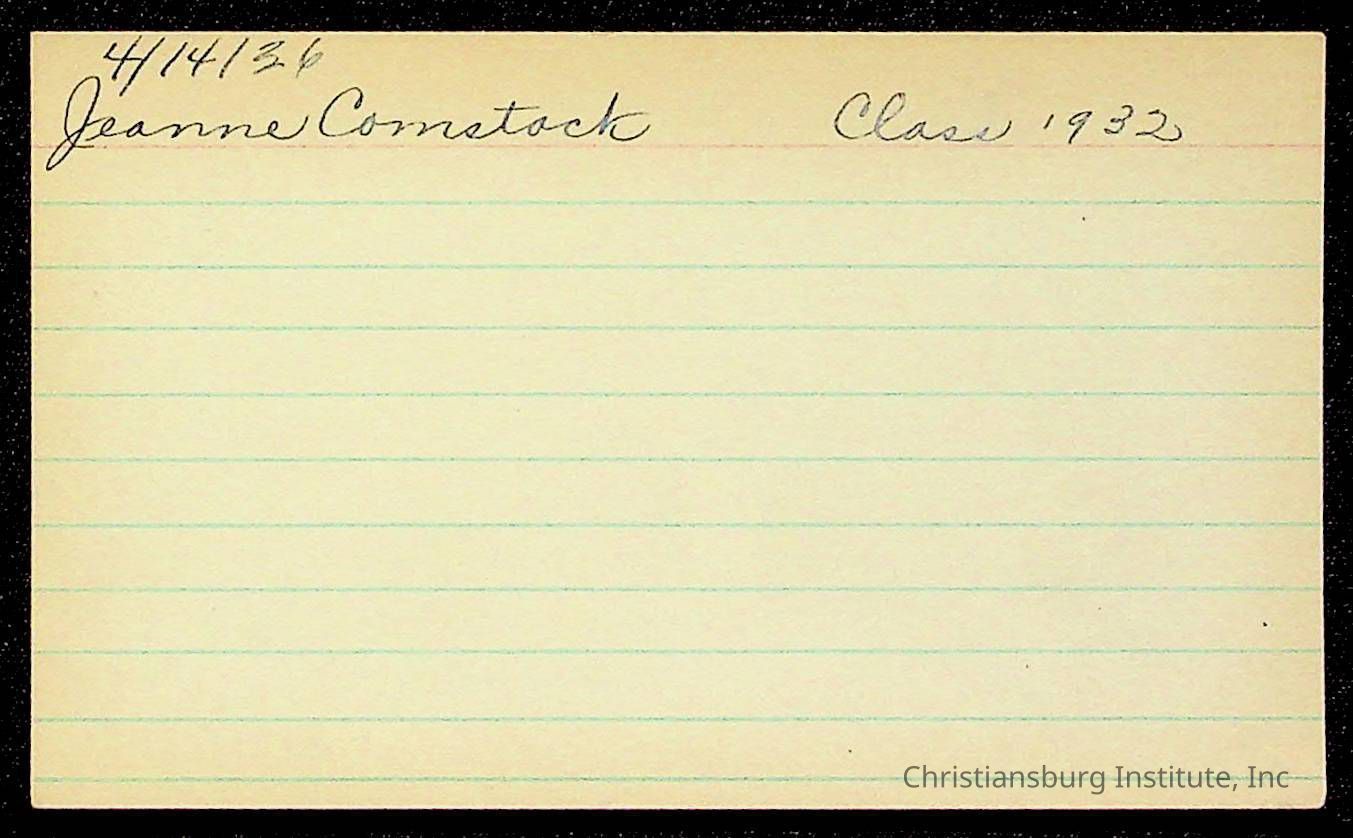 4/14/36
Jeanne Comstock Class 1932
Christiansburg Institute, Inc